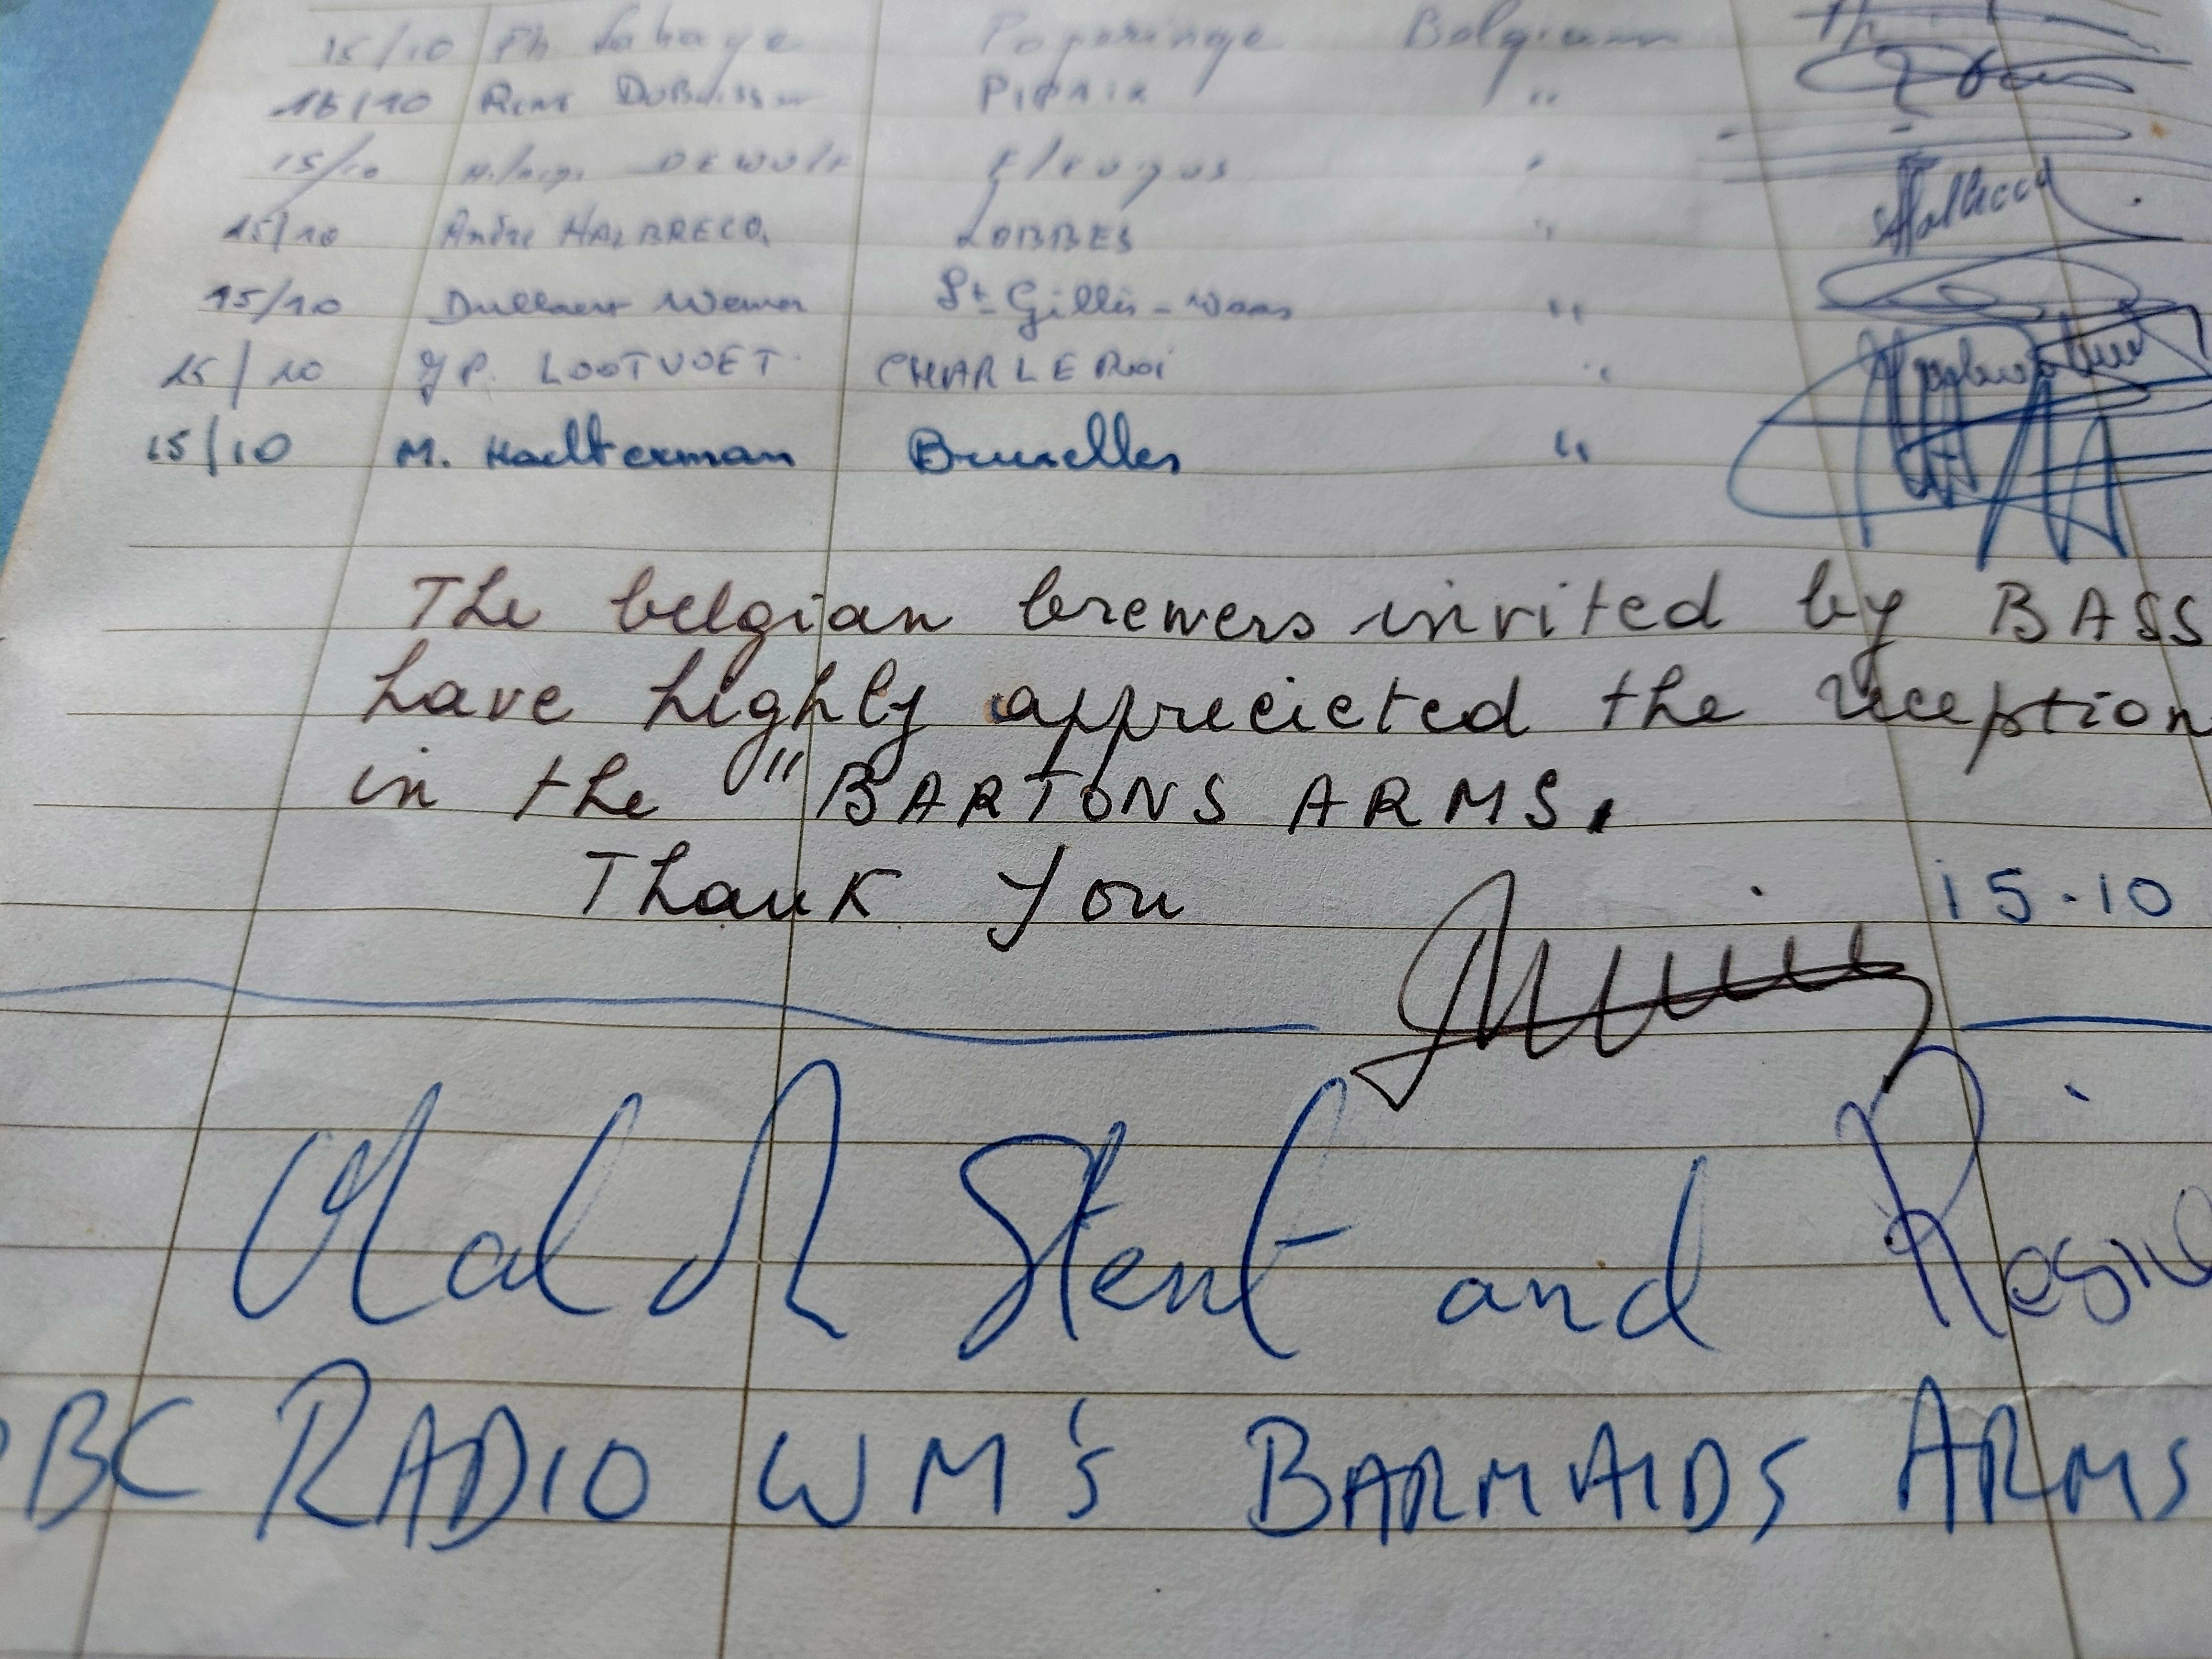 15/10 Ph Lahaye Poperinge Belgium
16/10 René PIPAIX "
15/10 DEWULF Fleurus "
15/10 André HALBRECQ LOBBES "
15/10 Dullaert Werner St Gillis-Waas "
15/10 JP. LOOTVOET CHARLEROI "
15/10 M. Haelterman Bruxelles "
The belgian brewers invited by BASS
have highly apprecieted the reception
in the "BARTONS ARMS.
Thank You
15.10
Mal Stent and Rosie
BBC RADIO WM's BARMAIDS ARMS